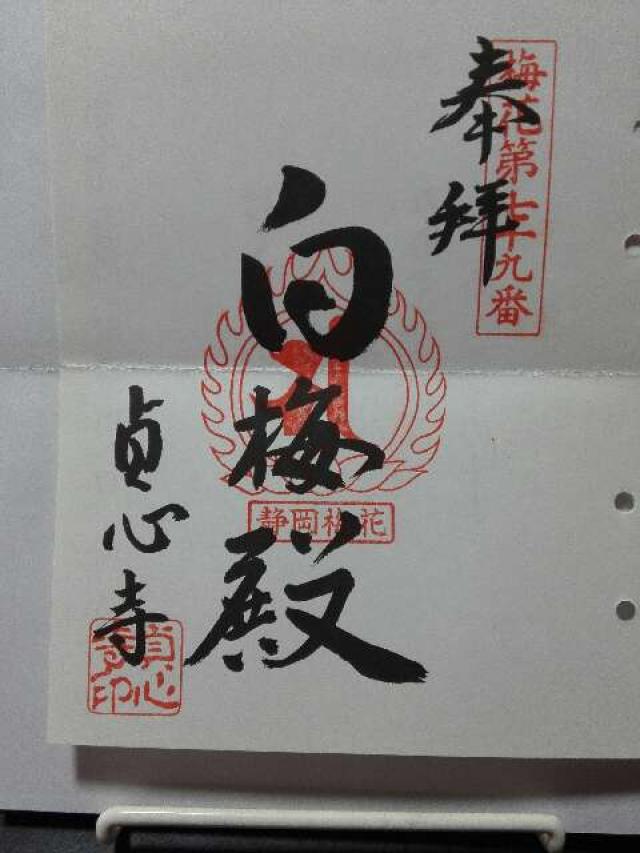 奉拝
梅花第七十九番
白梅殿
静岡梅花
貞心寺
貞心寺印